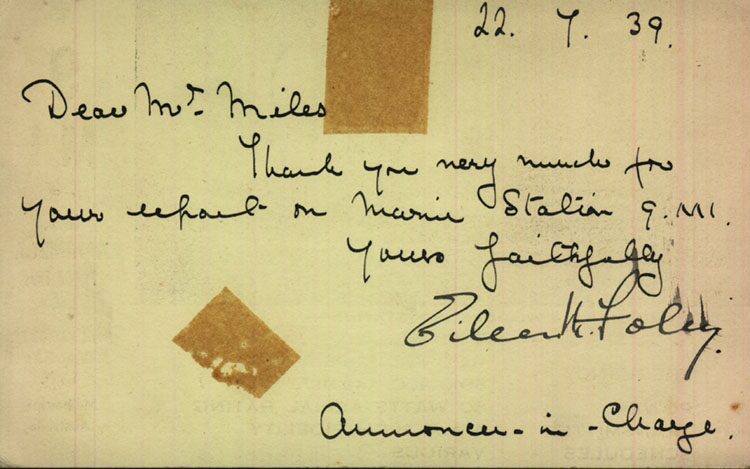 22. 7. 39.
Dear Mr. Miles
Thank you very much for
your report on Marine Station 9.MI.
Yours faithfully
Eileen M. Foley.
Announcer-in-Charge.
WATTS
VARIOUS
SCHEDULES